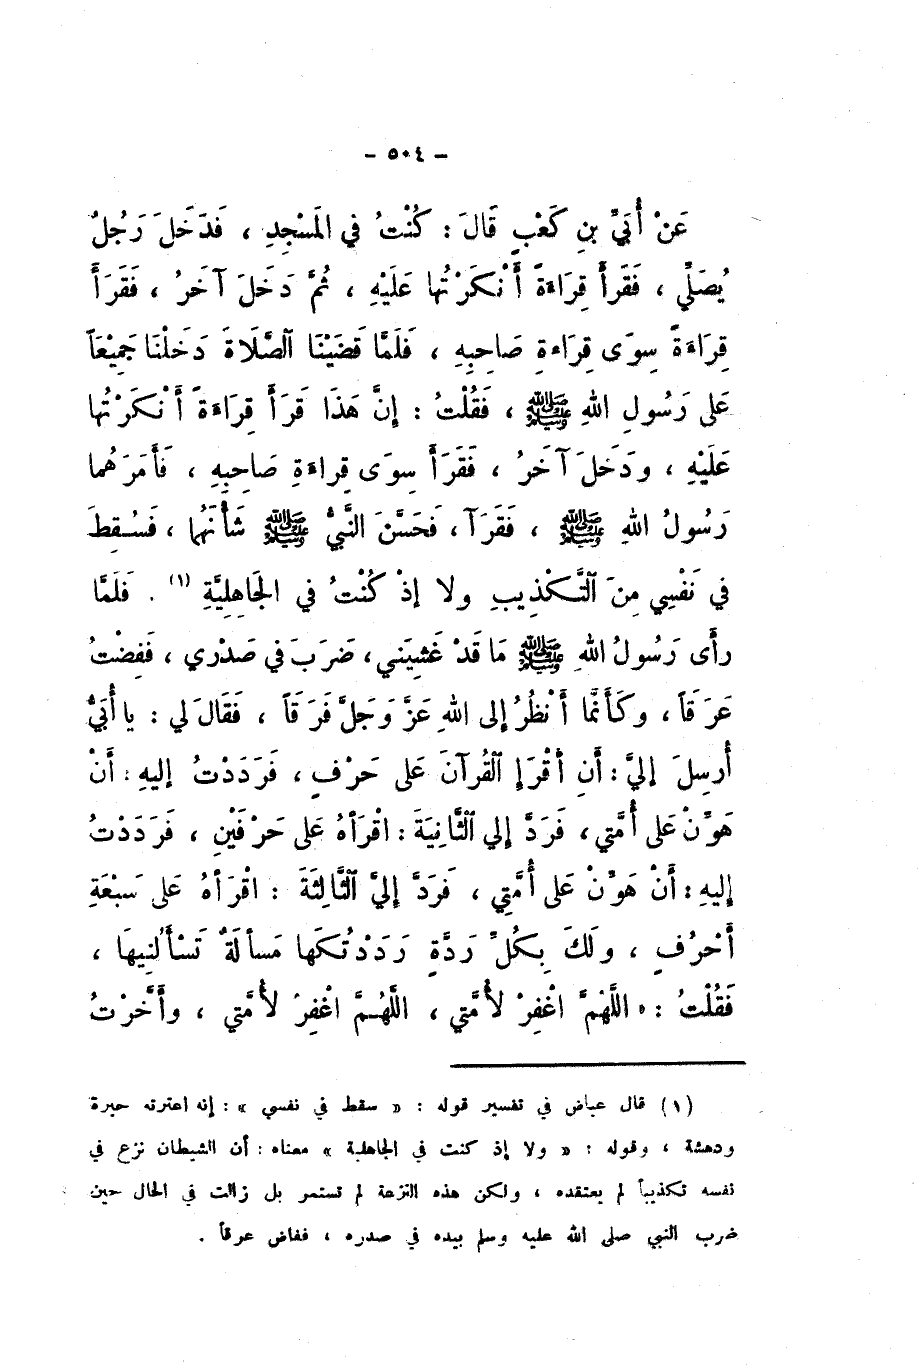 - ٥٠٤ -
عَنْ أُبَيِّ بنِ كَعْبٍ قَالَ : كُنْتُ في المَسْجِدِ ، فَدَخَلَ رَجُلٌ
يُصَلِّي ، فَقَرأَ قِرَاءَةً أَنْكَرْتُها عَلَيْهِ ، ثُمَّ دَخَلَ آخَرُ ، فَقَرَأَ
قِرَاءَةً سِوَى قِرَاءةِ صَاحِبِهِ ، فَلَمَّا قَضَيْنَا الصَّلَاةَ دَخَلْنَا جَمِيْعَاً
عَلى رَسُولِ اللهِ ﷺ ، فَقُلْتُ : إنَّ هَذَا قَرَأَ قِرَاءَةً أَنْكَرْتُها
عَلَيْهِ ، ودَخَلَ آخَرُ ، فَقَرَأَ سِوَى قِراءَةِ صَاحِبِهِ ، فَأَمَرَهُما
رَسُولُ اللهِ ﷺ ، فَقَرَآ ، فَحَسَّنَ النَّبيُّ ﷺ شَأْنَهُما ، فَسُقِطَ
في نَفْسِي مِنَ التَّكْذِيبِ ولا إذْ كُنْتُ في الجَاهِلِيَّةِ (١) . فَلَمَّا
رأَى رَسُولُ اللهِ ﷺ مَا قَدْ غَشِيَني ، ضَرَبَ في صَدْرِي ، فَفِضْتُ
عَرَقَاً ، وكَأَنَّما أَنْظُرُ إلى اللهِ عَزَّ وَجَلَّ فَرَقَاً ، فَقَالَ لي : يا أُبَيُّ
أُرسِلَ إليَّ : أَنِ أقْرَإِ القُرآنَ عَلى حَرْفٍ ، فَرَدَدْتُ إليهِ : أَنْ
هَوِّنْ عَلى أُمَّتي ، فَرَدَّ إلي الثَّانِيَةَ : اقْرَأهُ عَلى حَرْفَيْنِ ، فَرَدَدْتُ
إليهِ : أَنْ هَوِّنْ عَلى أُمَّتِي ، فَرَدَّ إليَّ الثَّالِثَةَ : اقْرَأهُ عَلى سَبْعَةِ
أَحْرُفٍ ، ولَكَ بِكُلِّ رَدَّةٍ رَدَدْتُكَها مَسأَلَةٌ تَسْأَلُنِيهَا ،
فَقُلْتُ : « اللَّهُمَّ اغْفِرْ لأُمَّتي ، اللَّهُمَّ اغْفِرْ لأُمَّتي ، وأَخَّرْتُ
(١) قال عياض في تفسير قوله : « سقط في نفسي » : إنه اعترته حيرة
ودهشة ، وقوله : « ولا إذ كنت في الجاهلية » معناه : أن الشيطان نزع في
نفسه تكذيباً لم يعتقده ، ولكن هذه النزعة لم تستمر بل زالت في الحال حين
ضرب النبي صلى الله عليه وسلم بيده في صدره ، ففاض عرقاً .